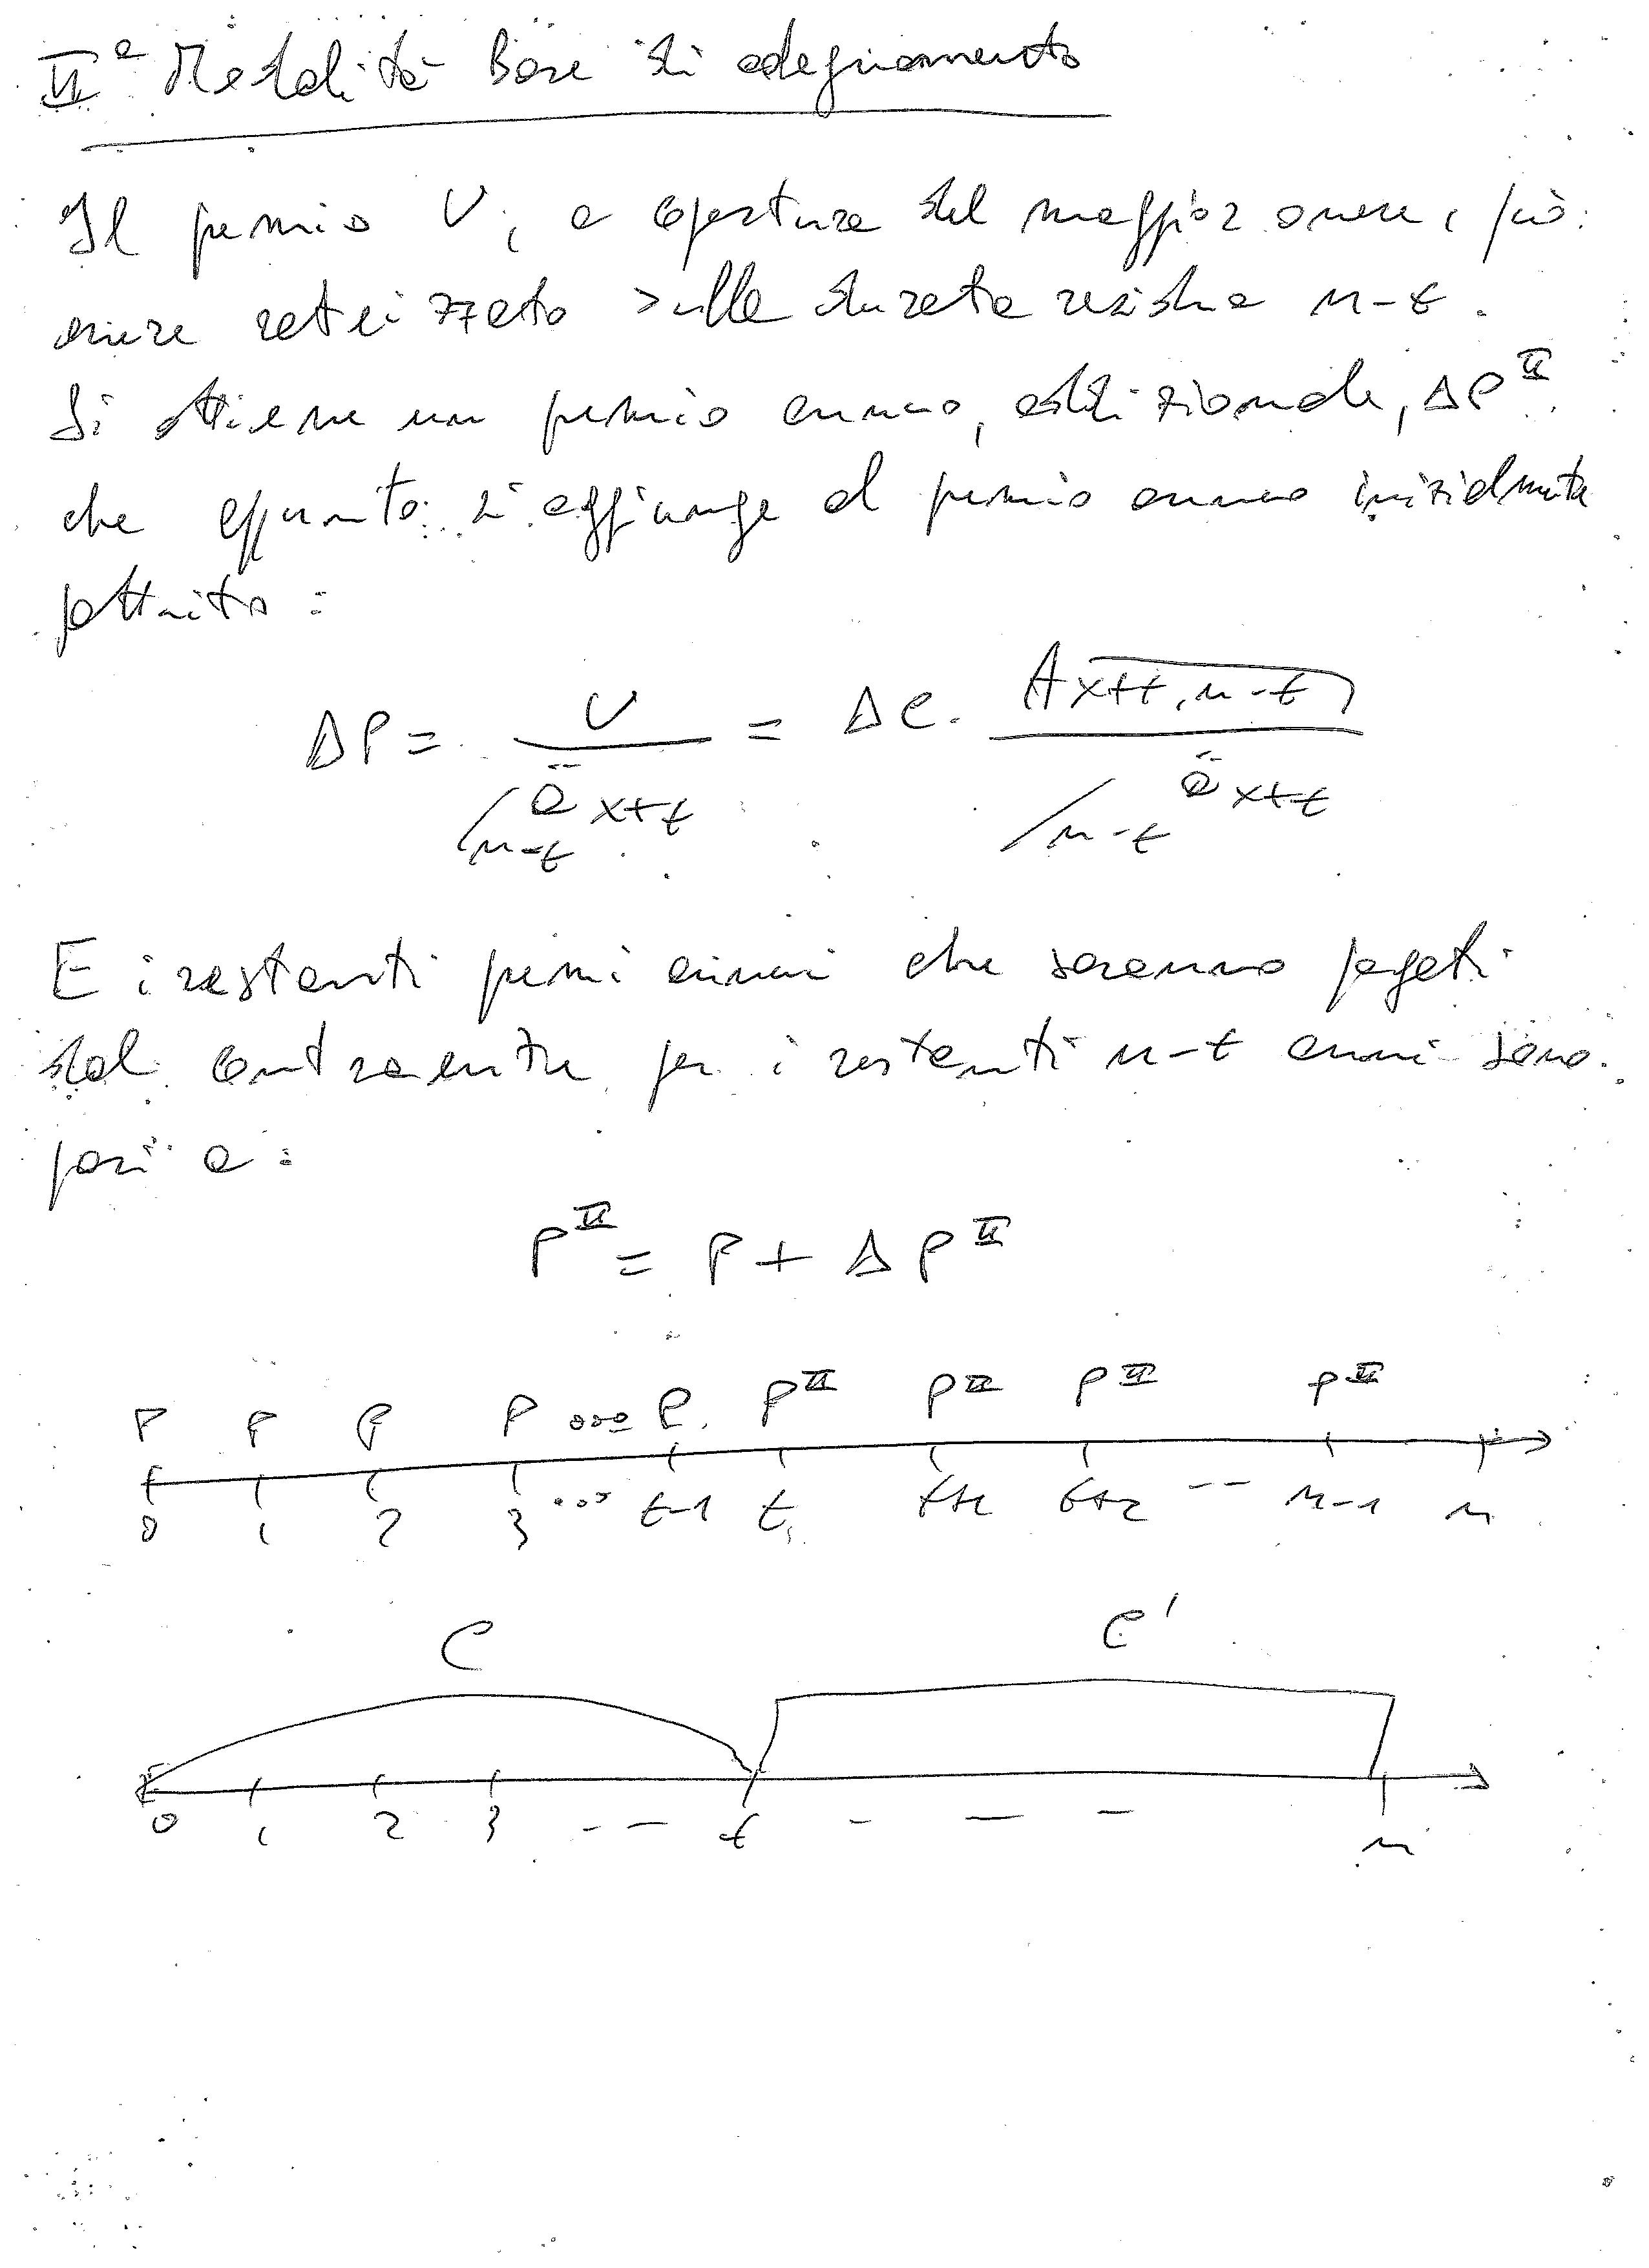 IIª Modalità Base di adeguamento
Il premio U, a copertura del maggior onere, può
essere rateizzato sulla durata residua n-t.
Si ottiene un premio annuo, addizionale, ΔP^II
che appunto si aggiunge al premio annuo inizialmente
pattuito:
ΔP = U / /n-t ä x+t = ΔC · A x+t, n-t⌉ / /n-t ä x+t
E i restanti premi annui che saranno pagati
dal contraente per i restanti n-t anni sono
pari a:
P^II = P + ΔP^II
P P P P ... P P^II P^II P^II P^II
0 1 2 3 ... t-1 t t+1 t+2 -- n-1 n
C C'
0 1 2 3 -- t - - - n